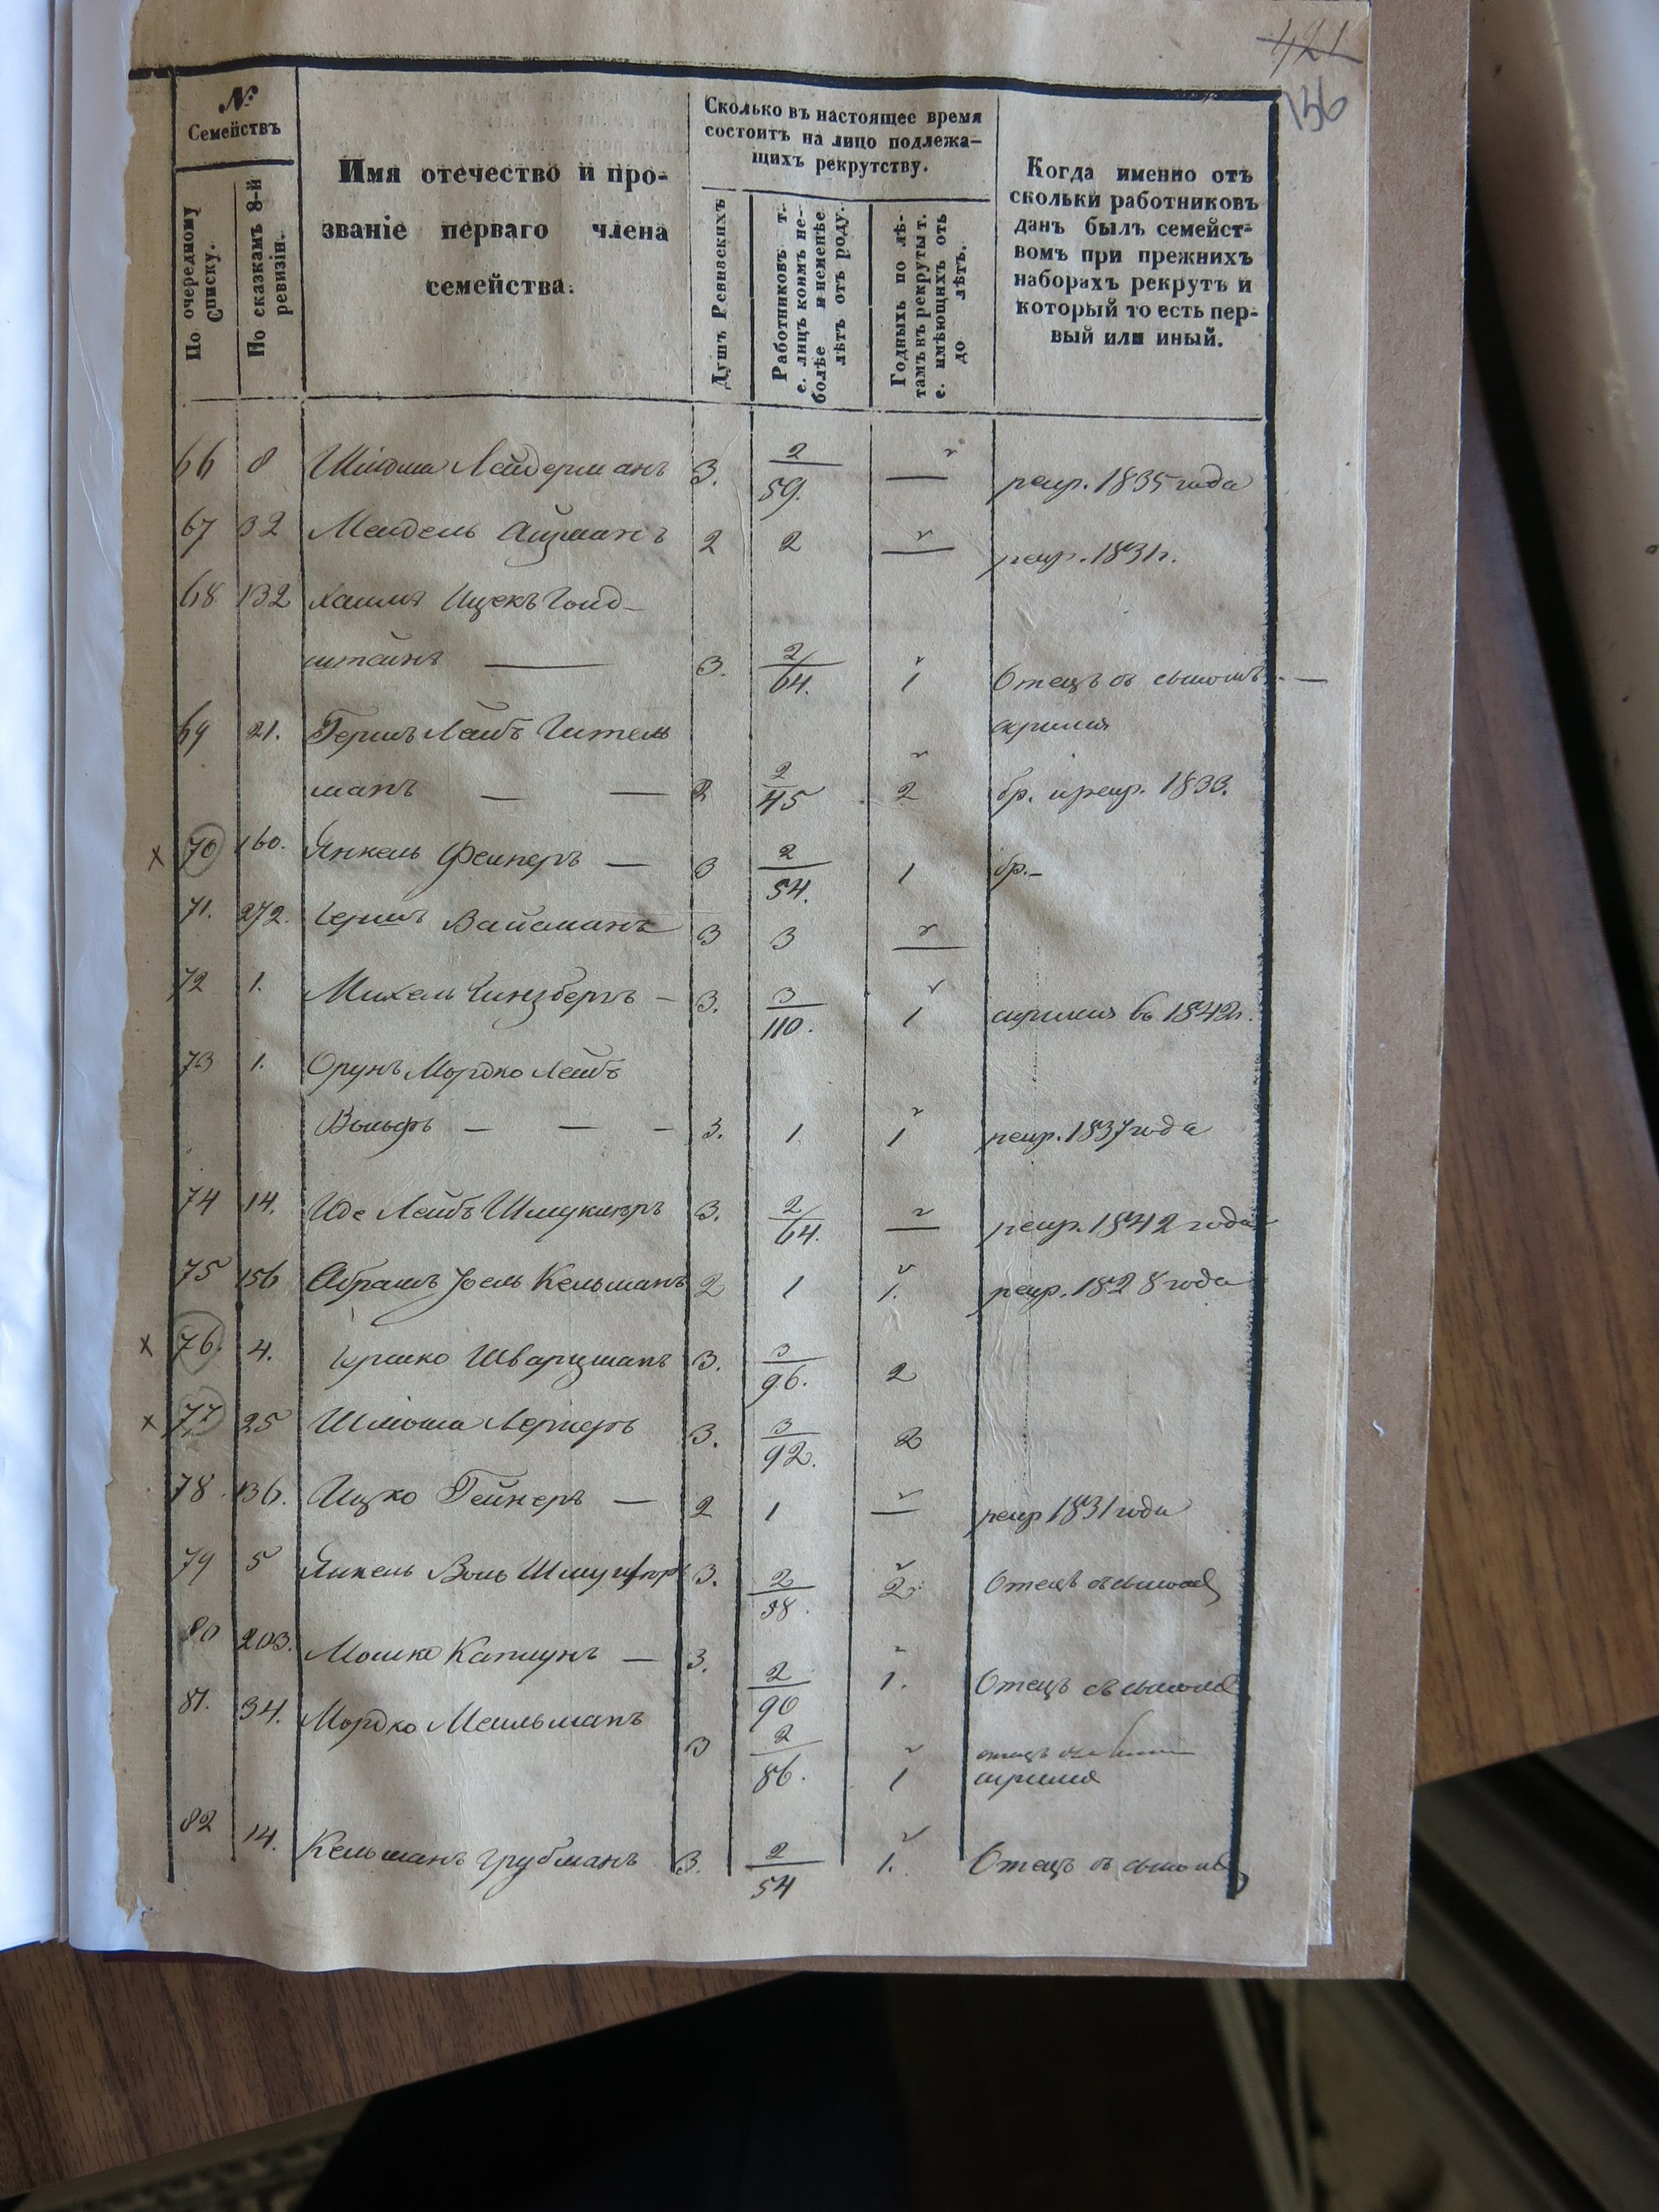 421
136
№
Семействъ
По очередному Списку.
По сказкамъ 8-й ревизіи.
Имя отечество и про-
званіе перваго члена
семейства.
Сколько въ настоящее время
состоитъ на лицо подлежа-
щихъ рекрутству.
Душъ Ревизскихъ
Работниковъ т.
е. лицъ коимъ не-
болѣе и неменѣе
лѣтъ отъ роду.
Годныхъ по лѣ-
тамъ въ рекруты т.
е. имѣющихъ отъ
до лѣтъ.
Когда именно отъ
скольки работниковъ
данъ былъ семейст-
вомъ при прежнихъ
наборахъ рекрутъ и
который то есть пер-
вый или иный.
66 8 Лейдерманъ 3. 2/59. — рекр. 1835 года
67 32 Мендель Айзманъ 2 2 — рекр. 1831 г.
68 132 Хаимъ Ицекъ Голд-
штейнъ — 3. 2/64. 1 Отецъ съ сыномъ. —
69 21. Гершъ Лейбъ Гитель
манъ — — 2 2/45 2 бр. и рекр. 1833.
х 70 160. Янкель — 3 2/54. 1 бр. —
71. 272. Гершъ Вайсманъ 3 3 —
72 1. Михель Гинзбергъ — 3. 3/110. 1 въ 1842 г.
73 1. Орунъ Мордко Лейбъ
Вольфъ — — — 3. 1. 1 рекр. 1837 года
74 14. Иде Лейбъ Шмуклеръ 3. 2/64. — рекр. 1842 года
75 156 Абрамъ Іосель Кельманъ 2 1 1. рекр. 1828 года
х 76. 4. Шварцманъ 3. 3/96. 2
х 77 25 Шлиома Лернеръ 3. 3/92. 2
78 136. Ицко Гейнеръ — 2 1 — рекр 1831 года
79 5 Янкель Шмуклеръ 3. 2/38. 2 Отецъ съ сыномъ
80 203. Мошко — 3. 2/90 1. Отецъ съ сыномъ
81. 34. Мордко 3 2/86. 1 отецъ
82 14. Кельманъ Грубманъ 3. 2/54 1. Отецъ съ сыномъ